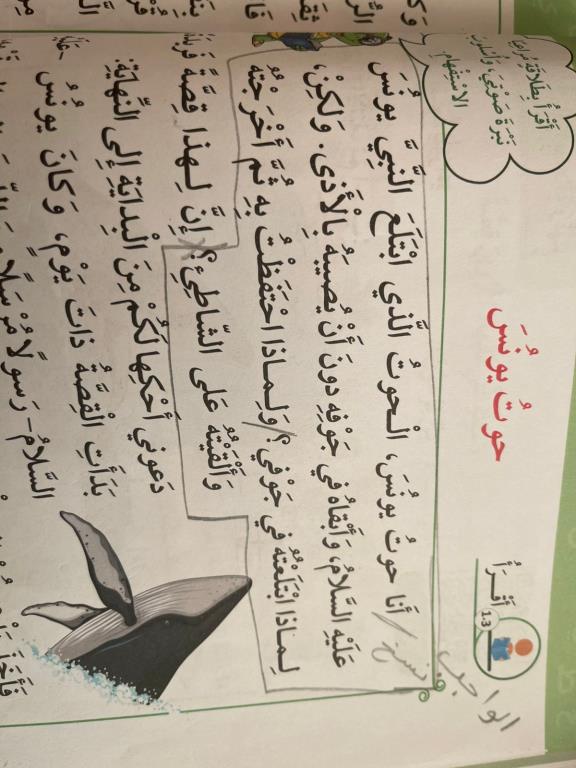 أَقْرَأُ
1-3
الواجب
نسخ
حوتُ يونُسَ
أَقْرَأُ بِطَلاقَةٍ مُراعِيًا
نَبْرَةَ صَوْتي، وَأُسْلوبَ
الاسْتِفْهامِ.
أَنا حوتُ يونُسَ، الْحوتُ الَّذي ابْتَلَعَ النَّبِيَّ يونُسَ
عَلَيْهِ السَّلامُ، وَأَبْقاهُ في جَوْفِهِ دونَ أَنْ يُصيبَهُ بِالْأَذى. وَلكِنْ،
لِماذا ابْتَلَعْتُهُ في جَوْفي؟ وَلِماذا احْتَفَظْتُ بِهِ ثُمَّ أَخْرَجْتُهُ
وَأَلْقَيْتُهُ عَلى الشّاطِئِ؟ إِنَّ لِهذا قِصَّةً
دَعوني أَحْكِها لَكُمْ مِنَ الْبِدايَةِ إِلى النِّهايَةِ.
بَدَأَتِ الْقِصَّةُ ذاتَ يَوْمٍ، وَكانَ يونُسُ
السَّلامُ- رَسولًا مُرْسَلًا